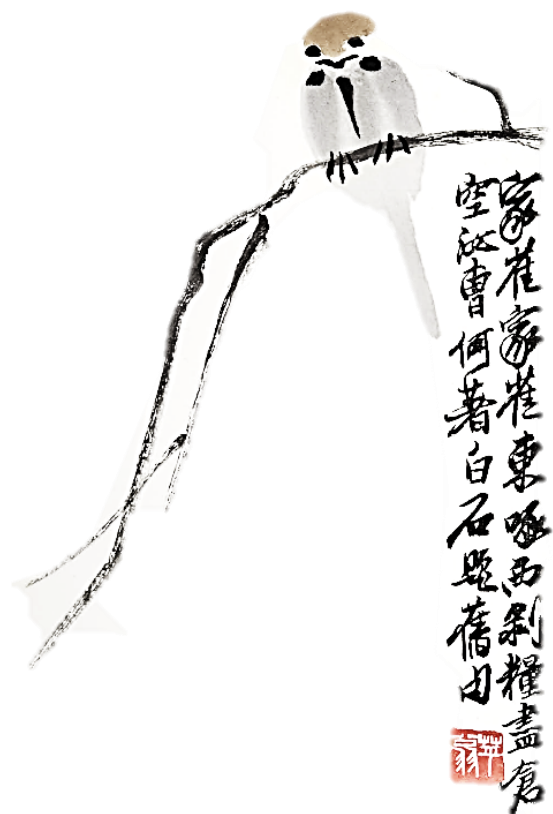 家雀家雀東啄西剝糧盡倉
空汝曹何著白石題舊句
萍翁